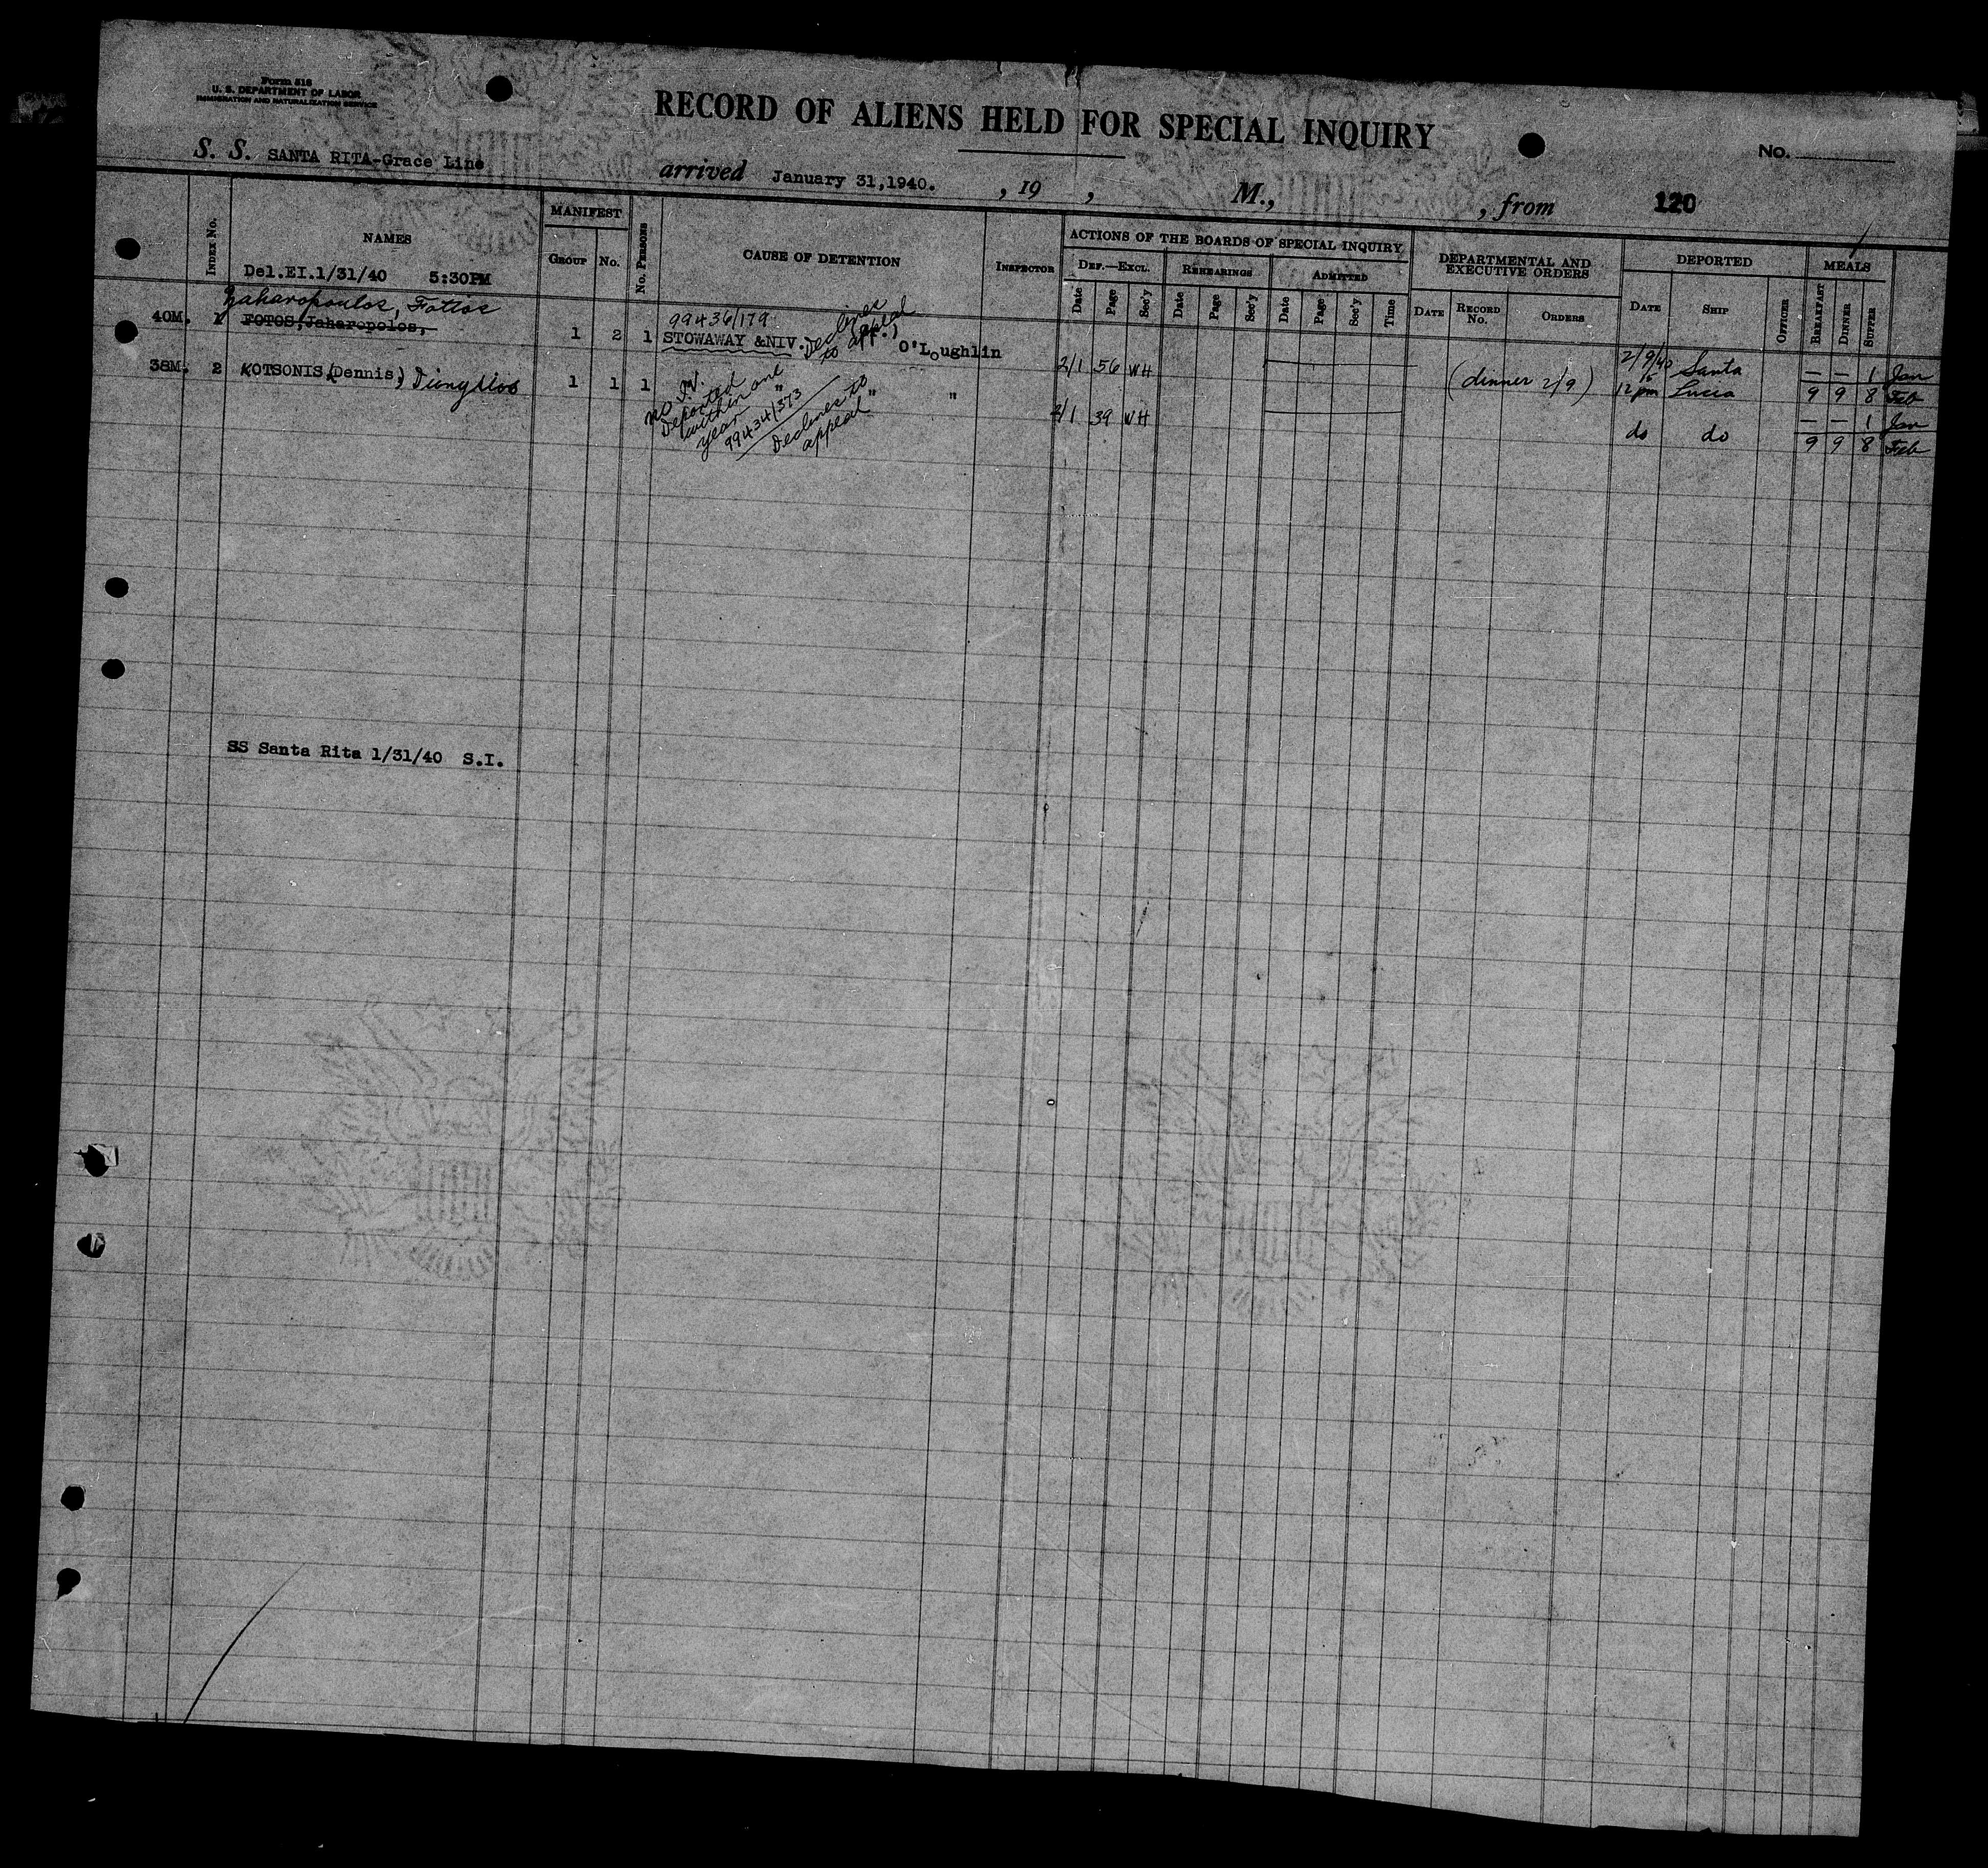 Form 518
U. S. DEPARTMENT OF LABOR
IMMIGRATION AND NATURALIZATION SERVICE
RECORD OF ALIENS HELD FOR SPECIAL INQUIRY
No.
S. S. SANTA RITA-Grace Line arrived January 31,1940. , 19 , M., , from 120
INDEX No. NAMES MANIFEST GROUP No. No. PERSONS CAUSE OF DETENTION INSPECTOR ACTIONS OF THE BOARDS OF SPECIAL INQUIRY DEPARTMENTAL AND EXECUTIVE ORDERS DEPORTED MEALS
DEF.—EXCL. REHEARINGS ADMITTED
Date Page Sec'y Date Page Sec'y Date Page Sec'y Time DATE RECORD No. ORDERS DATE SHIP OFFICER BREAKFAST DINNER SUPPER
Del.EI.1/31/40 5:30PM
Zaharopoulos, Fotios
40M. 1 FOTOS,Jaharopolos, 1 2 1 99436/179 STOWAWAY &NIV. Declines to appeal O'Loughlin 2/1 56 WH (dinner 2/9) 2/9/40 12 pm Santa Lucia — — 1 Jan
9 9 8 Feb
38M. 2 KOTSONIS,(Dennis,) 1 1 1 " " " 2/1 39 WH do do — — 1 Jan
9 9 8 Feb
no I.V.
Deported
within one
year
99434/373
Declines to
appeal
SS Santa Rita 1/31/40 S.I.